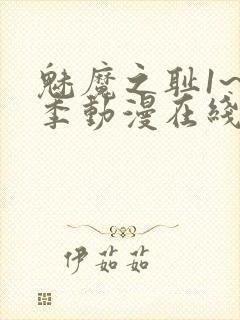 魅魔之耻1~
季動漫在綫
伊茹茹